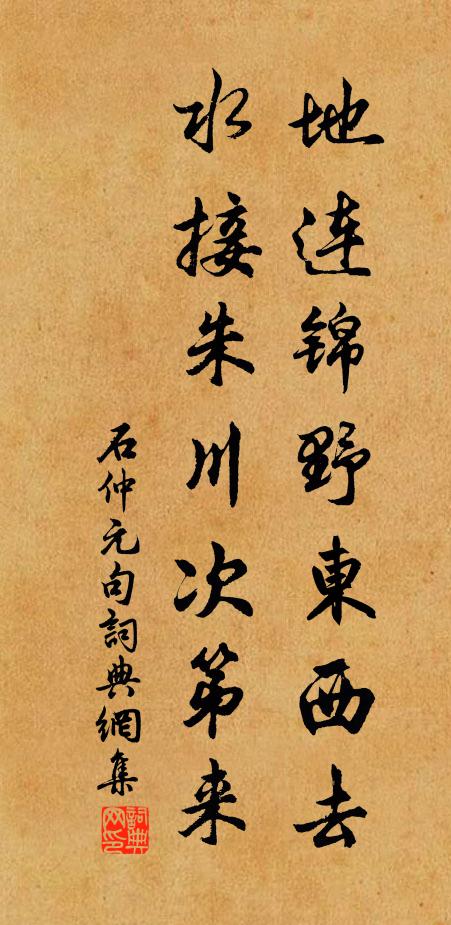 地連錦野東西去
水接朱川次第来
石仲元句詞典網集
詞典网印